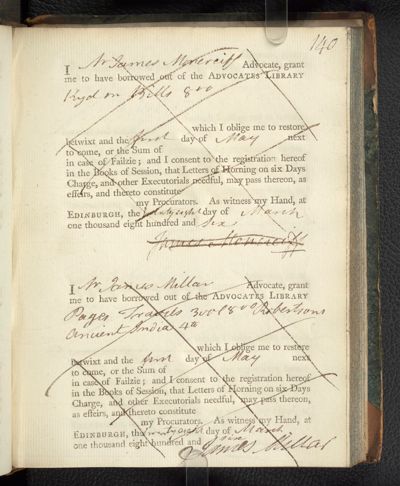 140
I Mr James Moncreiff Advocate, grant
me to have borrowed out of the ADVOCATES LIBRARY
Kyd on Bills 8vo
which I oblige me to restore
betwixt and the first day of May next
to come, or the Sum of
in case of Failzie; and I consent to the registration hereof
in the Books of Session, that Letters of Horning on six Days
Charge, and other Executorials needful, may pass thereon, as
effeirs, and thereto constitute
my Procurators. As witness my Hand, at
EDINBURGH, the twentyeight day of March
one thousand eight hundred and six
James Moncreiff
I Mr James Millar Advocate, grant
me to have borrowed out of the ADVOCATES LIBRARY
Pages Travels 3 vol 8vo Robertsons
Ancient India 4to
which I oblige me to restore
betwixt and the first day of May next
to come, or the Sum of
in case of Failzie; and I consent to the registration hereof
in the Books of Session, that Letters of Horning on six Days
Charge, and other Executorials needful, may pass thereon,
as effeirs, and thereto constitute
my Procurators. As witness my Hand, at
EDINBURGH, the twentyeight day of March
one thousand eight hundred and six
James Millar